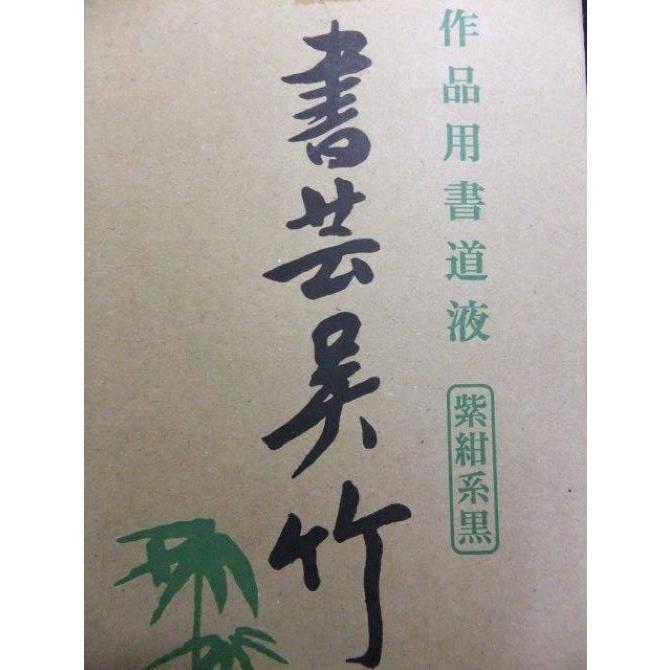 作品用書道液
紫紺系黒
書芸呉竹